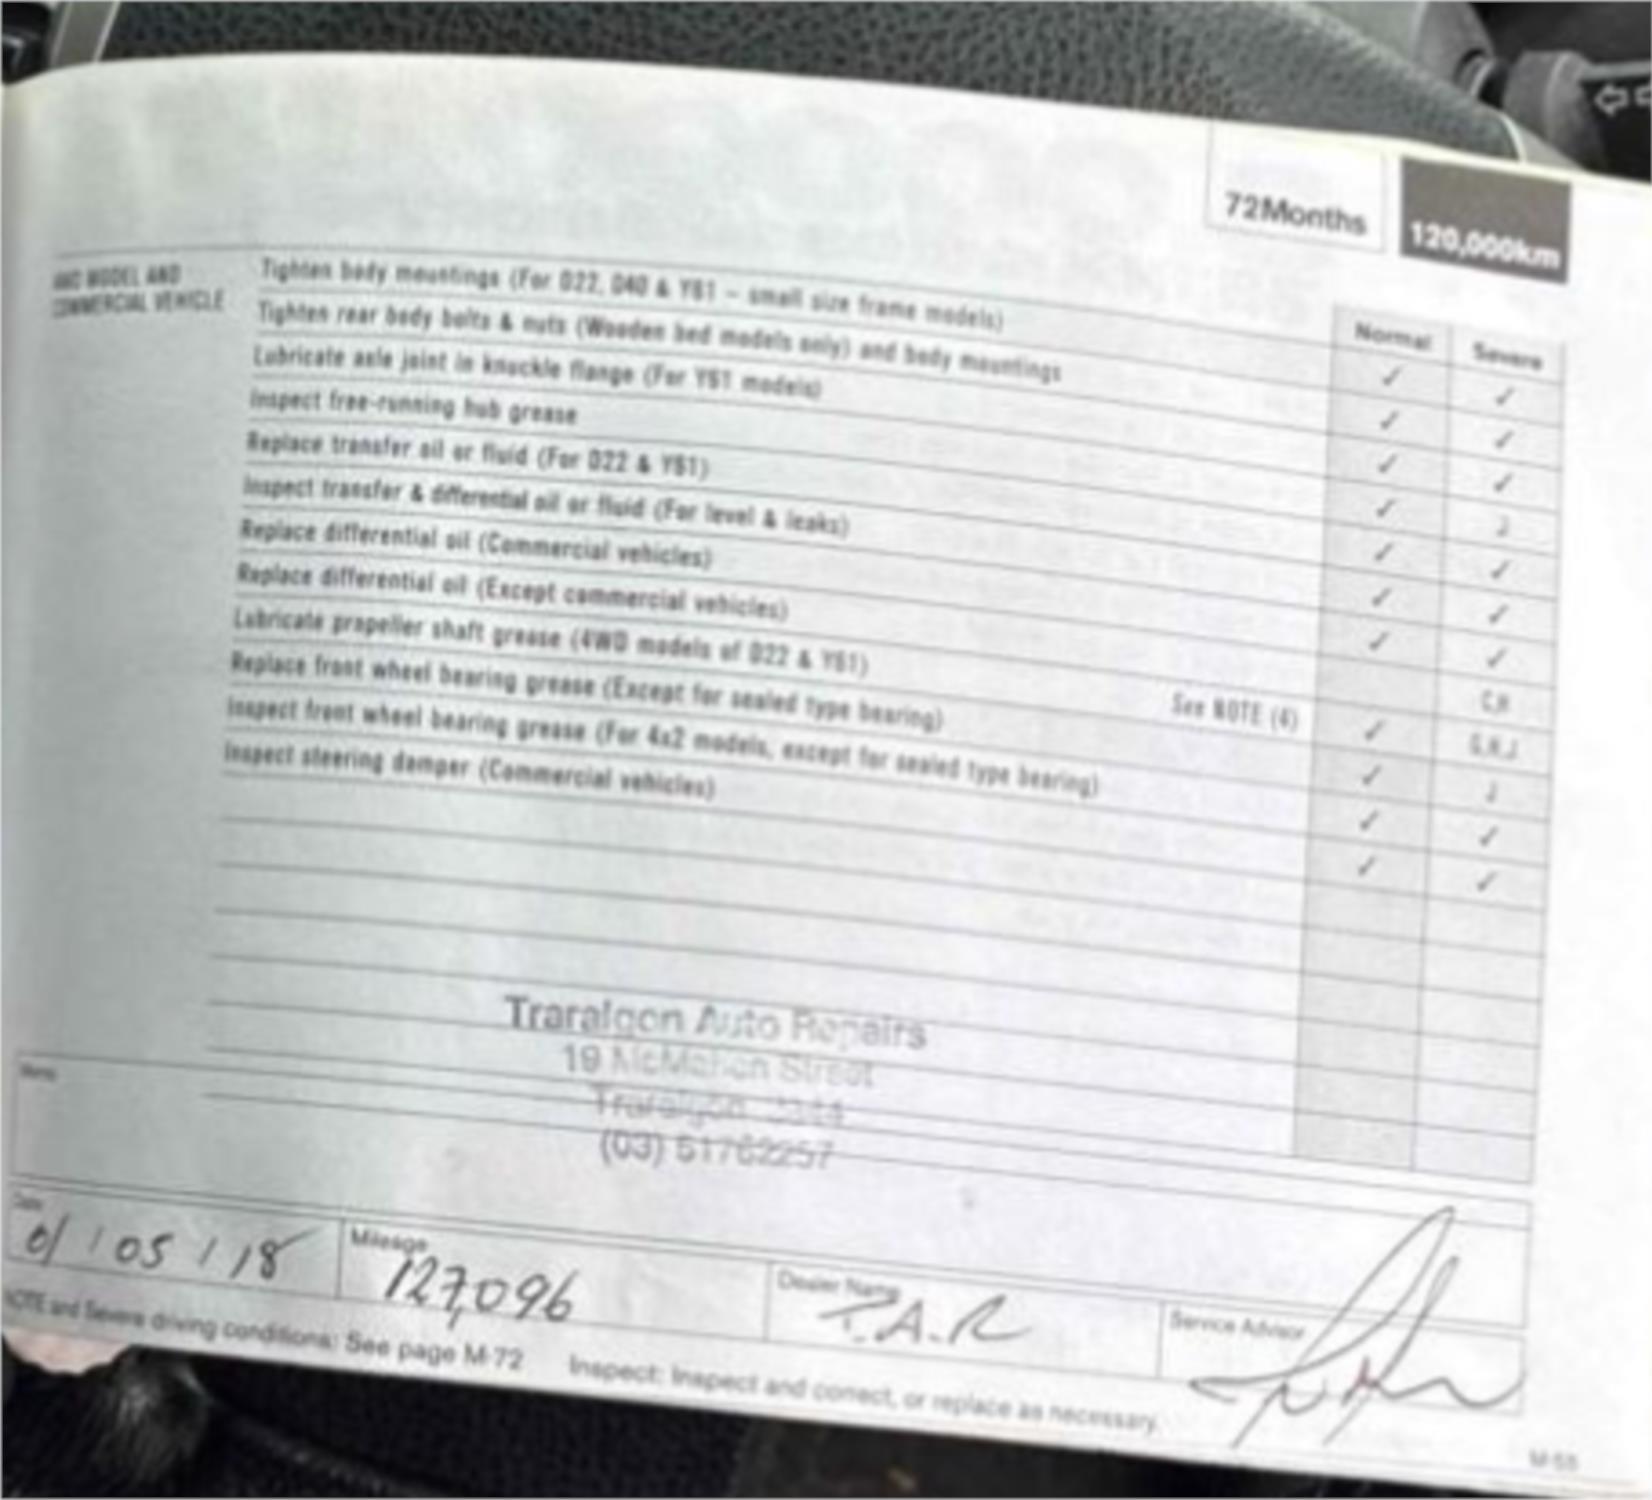 72Months
120,000km
4WD MODEL AND
COMMERCIAL VEHICLE
Normal
Severe
Tighten body mountings (For D22, D40 & Y61 – small size frame models) ✓ ✓
Tighten rear body bolts & nuts (Wooden bed models only) and body mountings ✓ ✓
Lubricate axle joint in knuckle flange (For Y61 models) ✓ ✓
Inspect free-running hub grease ✓ J
Replace transfer oil or fluid (For D22 & Y61) ✓ ✓
Inspect transfer & differential oil or fluid (For level & leaks) ✓ ✓
Replace differential oil (Commercial vehicles) ✓ ✓
Replace differential oil (Except commercial vehicles) C,H
Lubricate propeller shaft grease (4WD models of D22 & Y61) See NOTE (4) ✓ G,H,J
Replace front wheel bearing grease (Except for sealed type bearing) ✓ J
Inspect front wheel bearing grease (For 4x2 models, except for sealed type bearing) ✓ ✓
Inspect steering damper (Commercial vehicles) ✓ ✓
Traralgon Auto Repairs
19 McMahon Street
Traralgon 3844
(03) 51762257
Memo
Date
01 / 05 / 18
Mileage
127,096
Dealer Name
T.A.R
Service Advisor
NOTE and Severe driving conditions: See page M-72 Inspect: Inspect and correct, or replace as necessary.